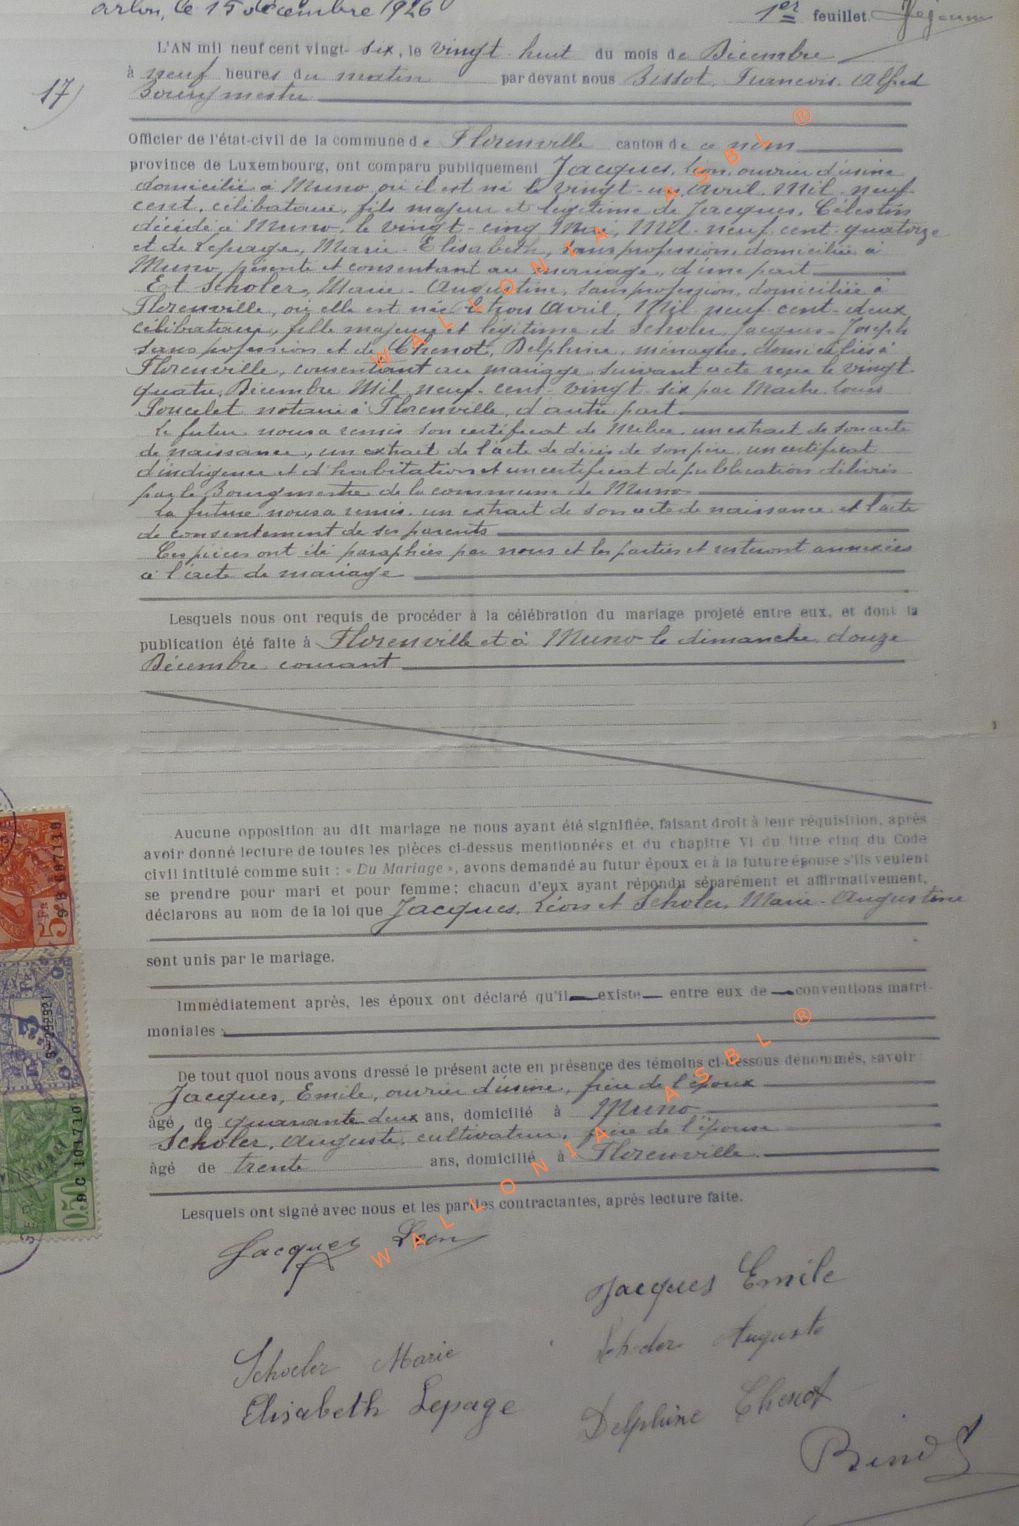 Arlon, le 15 décembre 1926
1er feuillet.
L'AN mil neuf cent vingt- six, le vingt huit du mois de Décembre
à neuf heures du matin par devant nous Bissot, Francois, Alfred
17)
Bourgmestre
Officier de l'état-civil de la commune de Florenville canton de ce nom
province de Luxembourg, ont comparu publiquement Jacques, Léon, ouvrier d'usine
domicilié à Muno, où il est né le vingt-un Avril, Mil neuf
cent, célibataire, fils majeur et légitime de Jacques, Célestin
décédé à Muno, le vingt-cinq Mai, Mil-neuf-cent-quatorze
et de Lepage, Marie-Elisabeth, sans profession, domiciliée à
Muno, présente et consentant au mariage, d'une part
Et Scholer, Marie-Augustine, sans profession, domiciliée à
Florenville, où elle est née le trois Avril, Mil neuf-cent-deux
célibataire, fille majeure et légitime de Scholer, Jacques-Joseph
sans profession et de Chenot, Delphine, ménagère, domiciliés à
Florenville, consentant au mariage, suivant acte reçu le vingt-
quatre Décembre Mil-neuf-cent-vingt-six par Maitre Louis
Poncelet notaire à Florenville, d'autre part
Le futur nous a remis son certificat de Milice, un extrait de son acte
de naissance, un extrait de l'acte de décès de son père, un certificat
d'indigence et d'habitation et un certificat de publication délivrés
par le Bourgmestre de la commune de Muno
La future nous a remis un extrait de son acte de naissance et l'acte
de consentement de ses parents
Ces pièces ont été paraphées par nous et les parties et resteront annexées
à l'acte de mariage
Lesquels nous ont requis de procéder à la célébration du mariage projeté entre eux, et dont la
publication été faite à Florenville et à Muno le dimanche douze
Décembre courant
Aucune opposition au dit mariage ne nous ayant été signifiée, faisant droit à leur réquisition, après
avoir donné lecture de toutes les pièces ci-dessus mentionnées et du chapitre VI du titre cinq du Code
civil intitulé comme suit : « Du Mariage », avons demandé au futur époux et à la future épouse s'ils veulent
se prendre pour mari et pour femme ; chacun d'eux ayant répondu séparément et affirmativement,
déclarons au nom de la loi que Jacques, Léon et Scholer, Marie-Augustine
sont unis par le mariage.
Immédiatement après, les époux ont déclaré qu'il existe entre eux de conventions matri-
moniales :
De tout quoi nous avons dressé le présent acte en présence des témoins ci-dessous dénommés, savoir :
Jacques, Emile, ouvrier d'usine, frère de l'époux
âgé de quarante-deux ans, domicilié à Muno
Scholer, Auguste, cultivateur, frère de l'épouse
âgé de trente ans, domicilié à Florenville
Lesquels ont signé avec nous et les parties contractantes, après lecture faite.
Jacques Léon
Jacques Emile
Schoeler Marie
Scholer Auguste
Elisabeth Lepage
Delphine Chenot
WALLONIA ASBL ®
WALLONIA ASBL ®
5 Fr
2 Fr
0.50
9C 101710